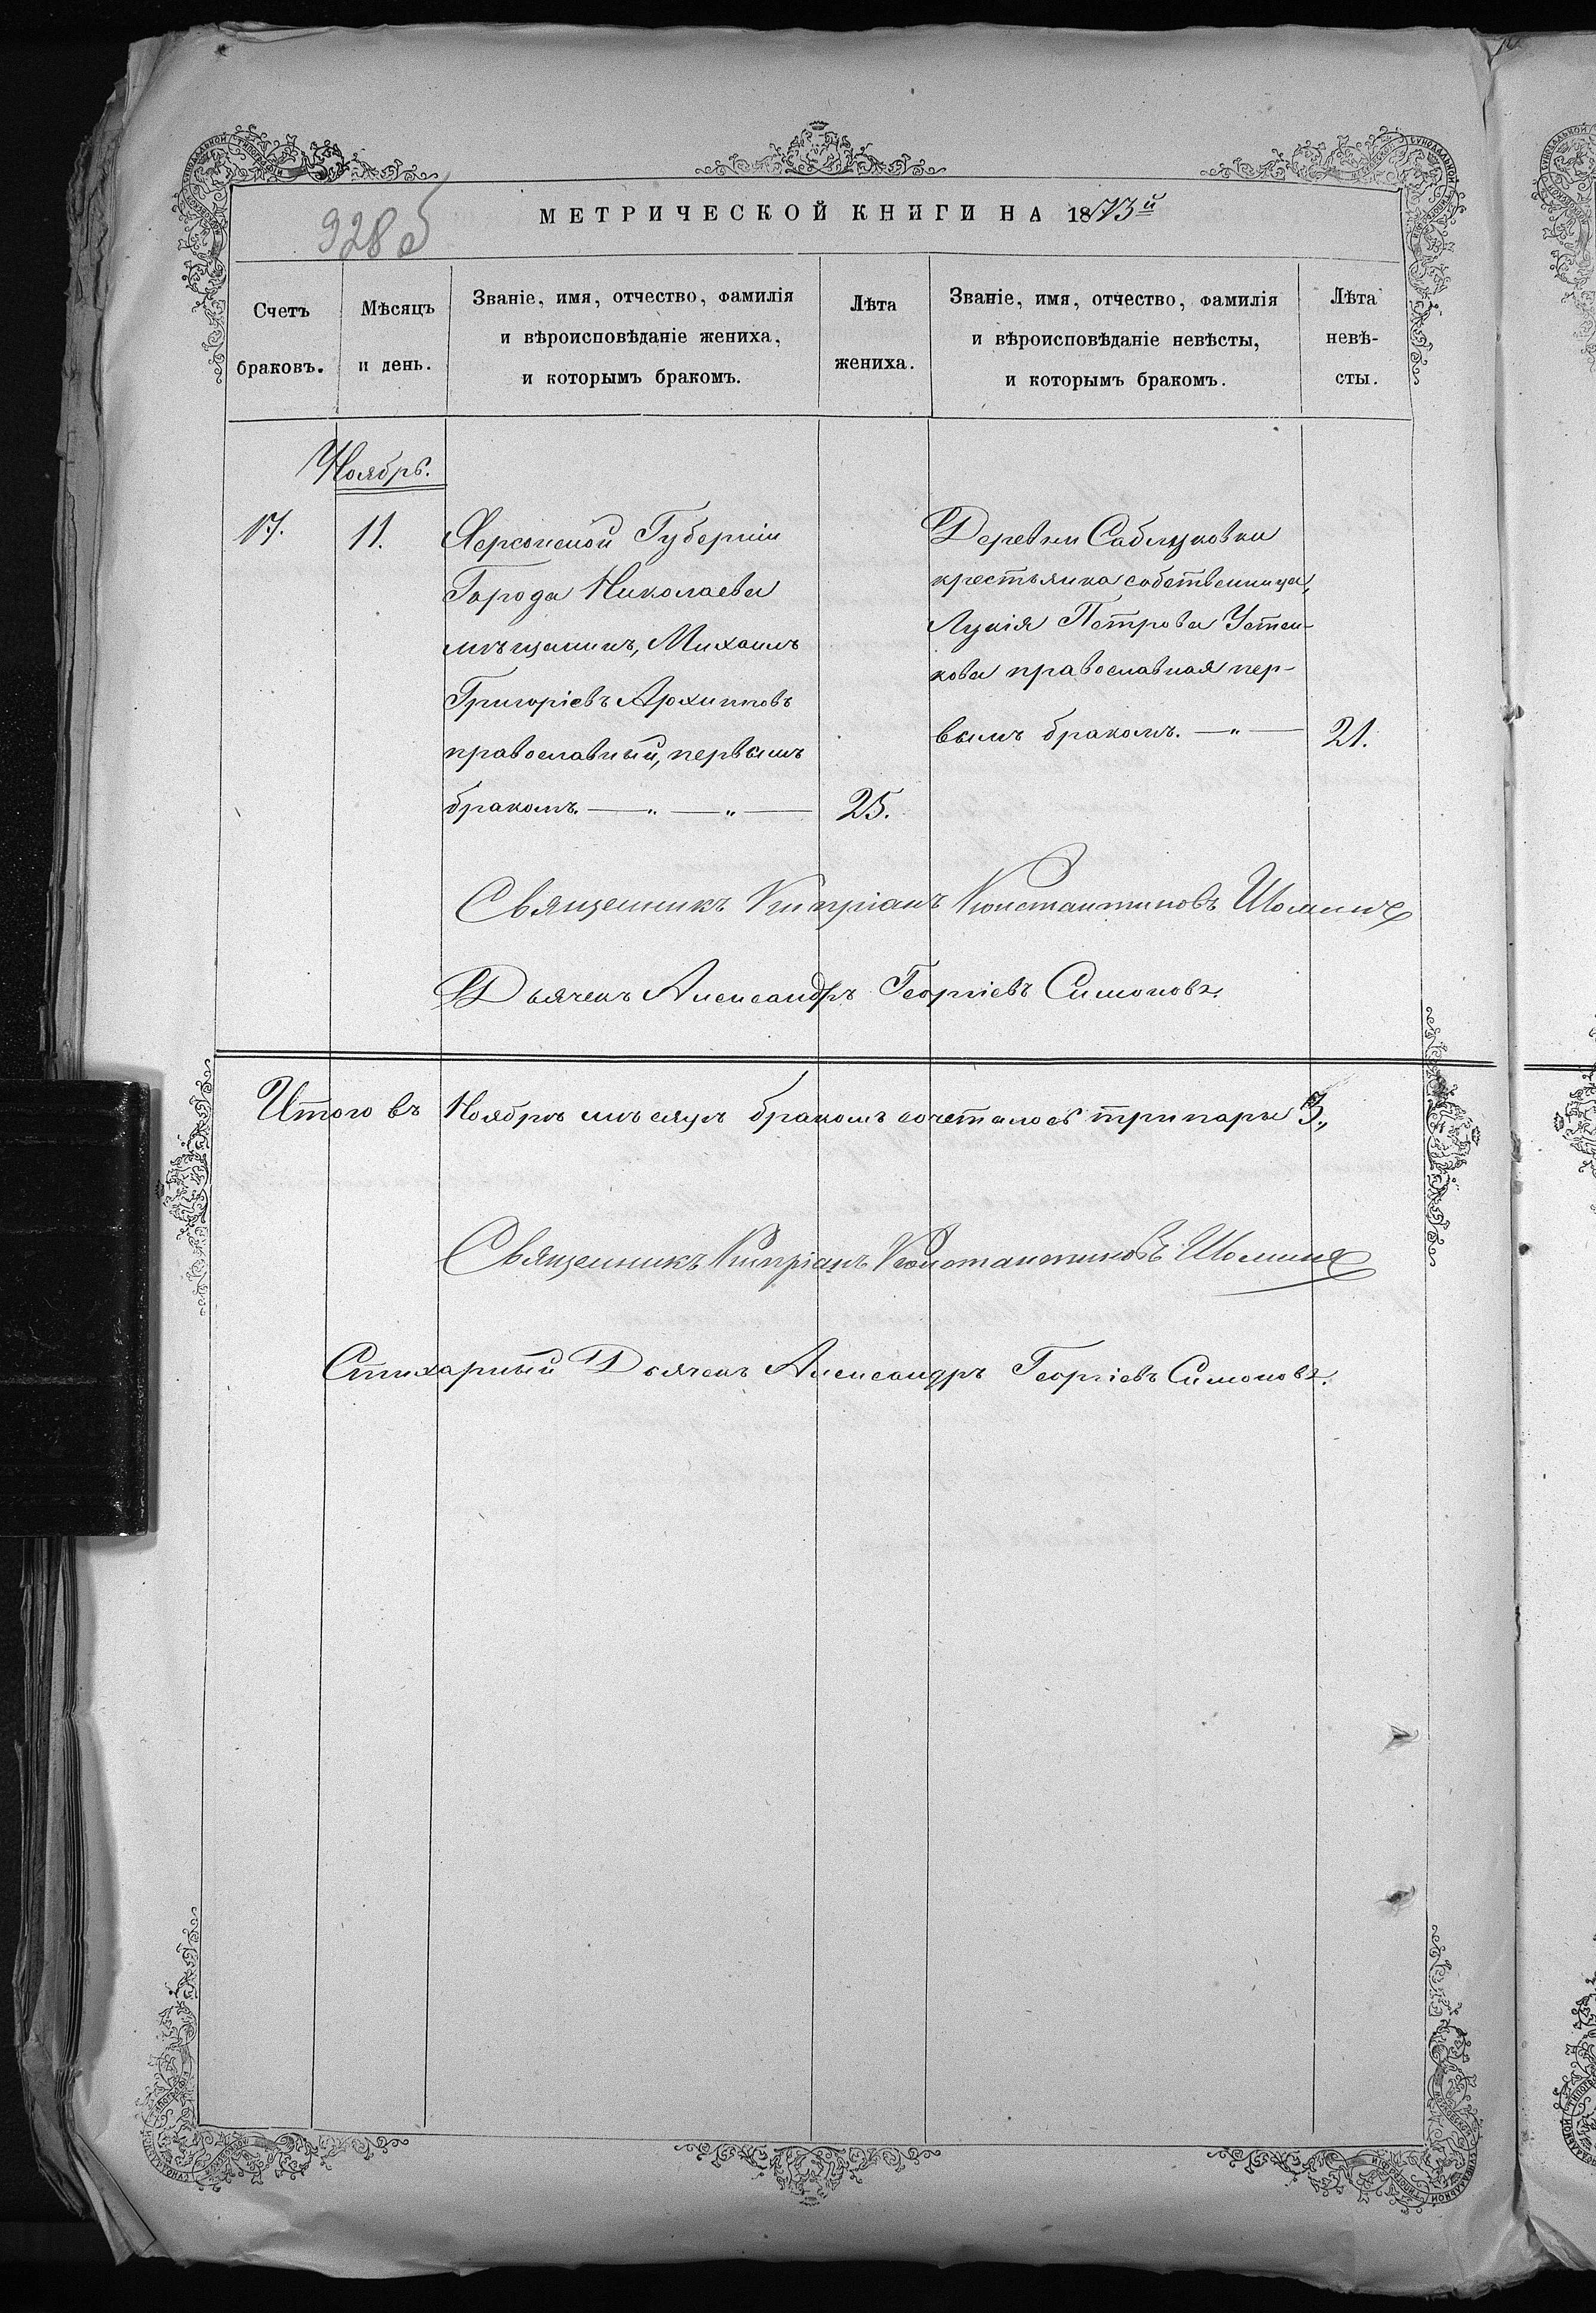 928 об
МЕТРИЧЕСКОЙ КНИГИ НА 1873й
Счетъ браковъ.
Мѣсяцъ и день.
Званіе, имя, отчество, фамилія
и вѣроисповѣданіе жениха,
и которымъ бракомъ.
Лѣта жениха.
Званіе, имя, отчество, фамилія
и вѣроисповѣданіе невѣсты,
и которымъ бракомъ.
Лѣта невѣ-
сты.
Ноябрь.
17.
11.
Херсонской Губерніи
Города Николаева
мѣщанинъ, Михаилъ
Григоріевъ Архиповъ
православный, первымъ
бракомъ. — „ — „ —
25.
Деревни Саблуковки
крестьянка собственница,
Лукія Петрова Устен-
кова православная пер-
вымъ бракомъ. — „ —
21.
Священникъ Кипріанъ Константиновъ
Дьячекъ Александръ Георгіевъ Симоновъ.
Итого въ Ноябрѣ мѣсяцѣ бракомъ сочеталось три пары 3„
Священникъ Кипріанъ Константиновъ
Стихарный Дьячекъ Александръ Георгіевъ Симоновъ.